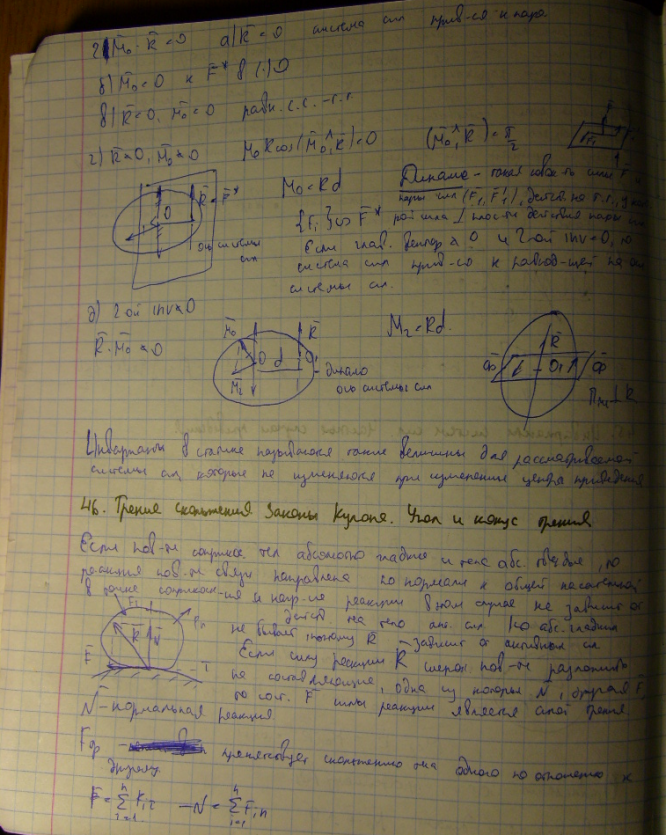 M̄₀·R̄=0 а) R̄=0 система сил прив-ся к паре.
б) M̄₀=0 к F̄* в (.) O
в) R̄=0, M̄₀=0 равн. с.с.
г) R̄≠0, M̄₀≠0 M₀R cos(M̄₀^R̄)=0 (M̄₀^R̄)=π/2
M₀=Rd Динама – такая сов-ть силы
пары сил
R̄=F̄* {F̄i}∞F̄* пл-ти действия пары
O Если глав. вектор ≠0 и 2ой inv=0, то
ось системы сил система сил прив-ся к равнод-щей на
системы сил.
д) 2ой inv≠0
R̄·M̄₀≠0 M̄₀ R̄ M₂=Rd R̄
O d O₁ динамо
M̄₂ ось системы сил
Инварианты в статике называются такие величины для рассматриваемой
системы сил, которые не изменяются при изменении центра приведения
46. Трение скольжения Законы Кулона. Угол и конус трения
Если пов-ти соприкас. тел абсолютно гладкие и тела абс. твердые, то
реакция пов-ти связи направлена по нормали к общей касательной
в точке соприкосн-ия и напр-ие реакции в этом случае не зависит от
действ. на тело акт. сил. Но абс. гладких
не бывает, поэтому R̄ – зависит от активных сил.
Если силу реакции R̄ шерох. пов-ти разложить
на составляющие, одна из которых N̄, другая F̄,
то сост. F̄ силы реакции является силой трения
N̄ – нормальная реакция
Fтр – препятствует скольжению тела одного по отношению к
другому.
F̄=∑Fiτ –N=∑Fin